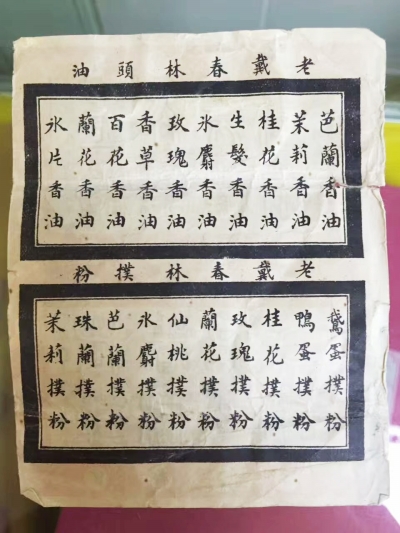 老戴春林頭油
芭蘭香油
茉莉香油
桂花香油
生髮香油
氷麝香油
玫瑰香油
香草香油
百花香油
蘭花香油
氷片香油
老戴春林撲粉
鵞蛋撲粉
鴨蛋撲粉
桂花撲粉
玫瑰撲粉
蘭花撲粉
仙桃撲粉
氷麝撲粉
芭蘭撲粉
珠蘭撲粉
茉莉撲粉